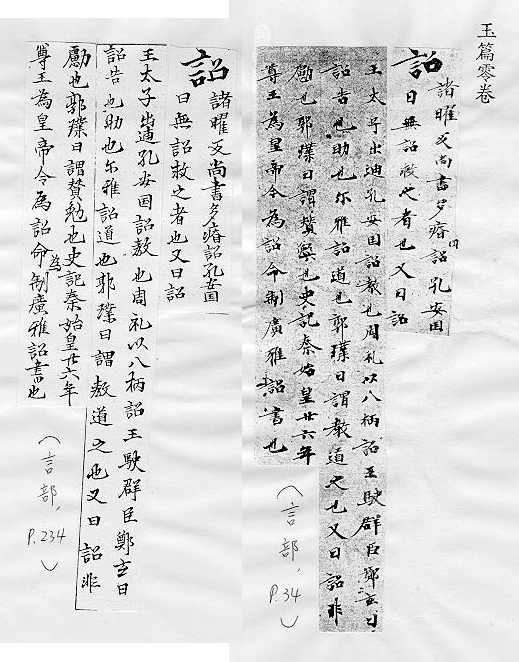 玉篇零卷
詔
諸曜反尚書夛瘠詔孔安囯
曰無詔敎之者也又曰詔
王太子出迪孔安囯詔敎也周礼以八柄詔王馭群臣鄭玄曰
詔告也助也尓雅詔道也郭璞曰謂教道之也又曰詔非
勵也郭璞曰謂賛勉也史記秦始皇廿六年
尊王為皇帝令為詔命制廣雅詔書也
(言部, P.34)
詔
諸曜反尚書夛瘠詔孔安囯
曰無詔敎之者也又曰詔
王太子出迪孔安囯詔敎也周礼以八柄詔王馭群臣鄭玄曰
詔告也助也尓雅詔道也郭璞曰謂教道之也又曰詔非
勵也郭璞曰謂賛勉也史記秦始皇廿六年
尊王為皇帝令為詔命為制廣雅詔書也
(言部, P.234)